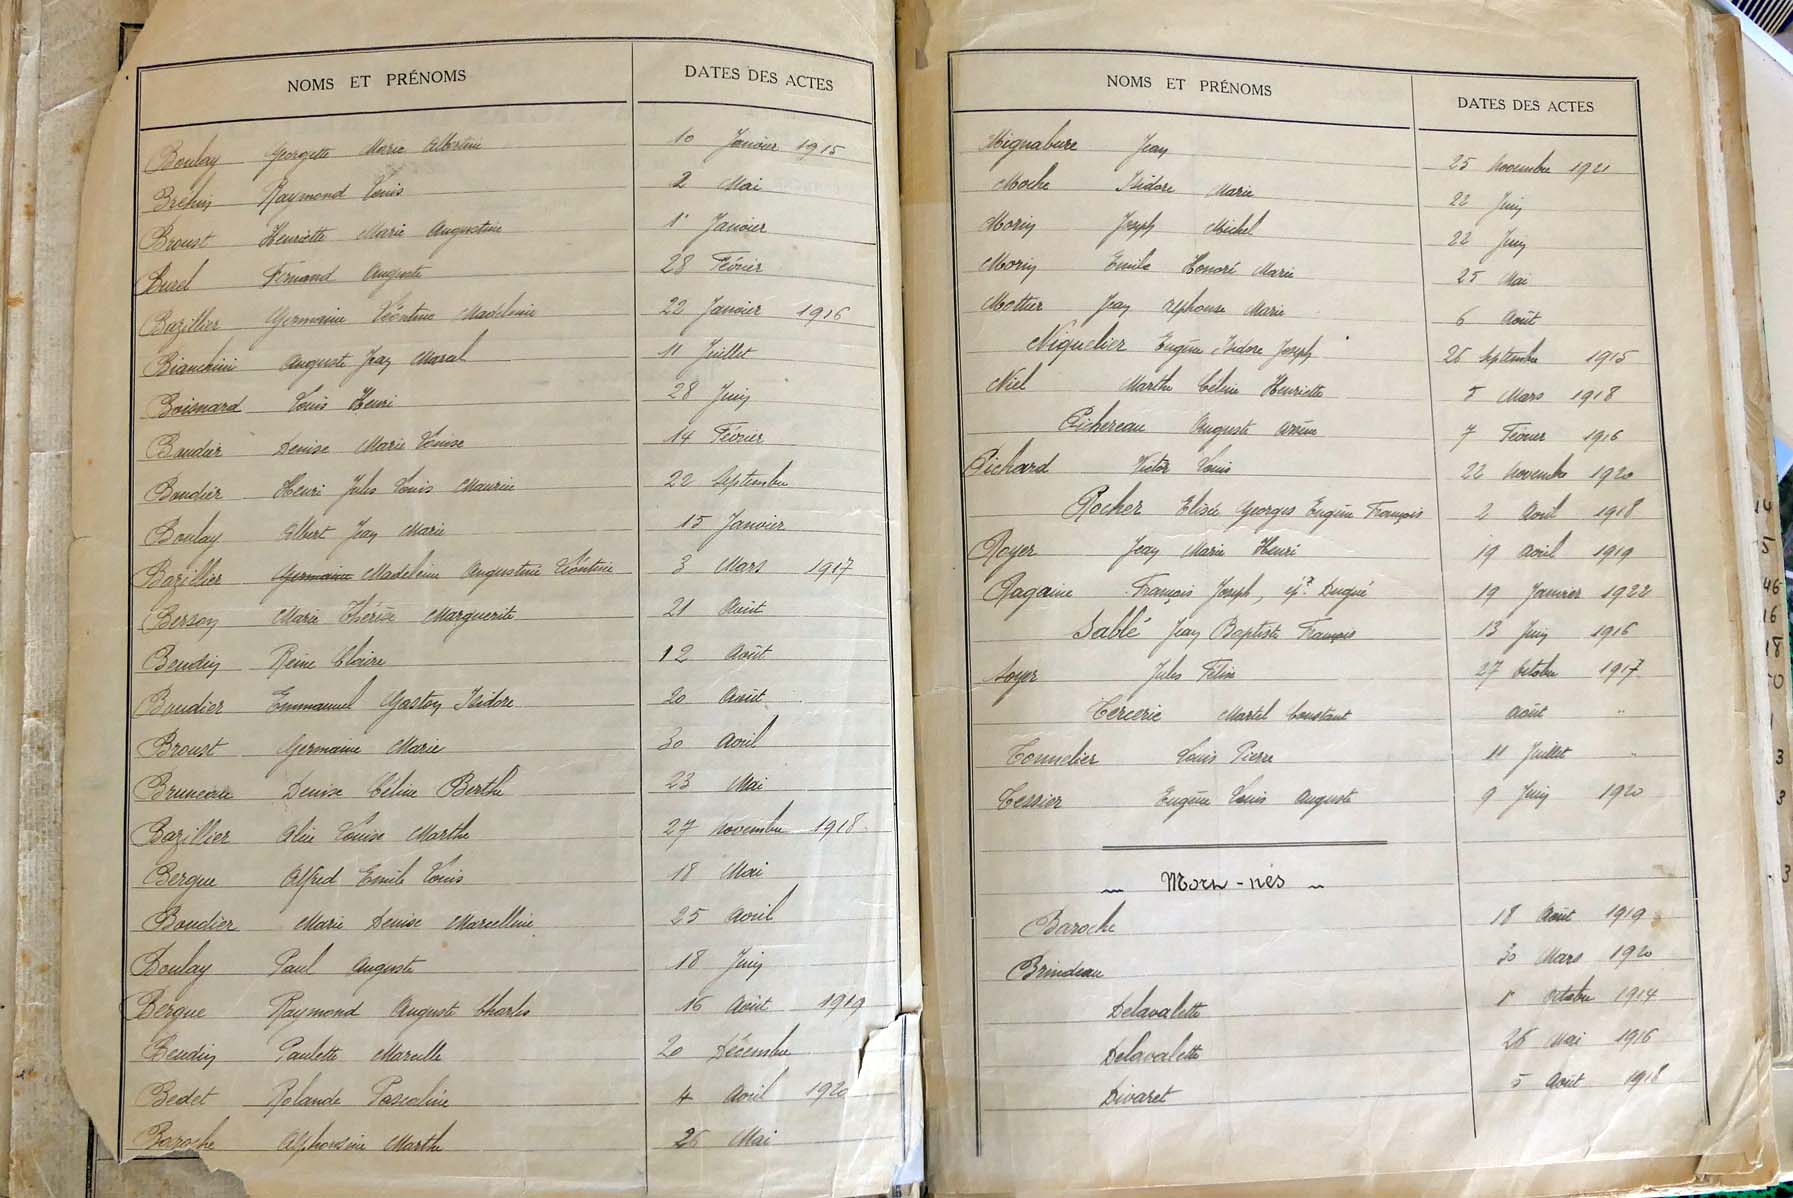 NOMS ET PRÉNOMS DATES DES ACTES
Boulay Georgette Marie Albertine 10 Janvier 1915
Bréhin Raymond Louis 2 Mai
Broust Henriette Marie Augustine 1er Janvier
Burel Fernand Auguste 28 Février
Bazillier Germaine Léontine Madeleine 22 Janvier 1916
Bianchini Auguste Jean Marcel 11 Juillet
Boisnard Louis Henri 28 Juin
Boudier Denise Marie Louise 14 Février
Boudier Henri Jules Louis Maurice 22 Septembre
Boulay Albert Jean Marie 15 Janvier
Bazillier Germaine Madeleine Augustine Léontine 3 Mars 1917
Berson Marie Thérèse Marguerite 21 Août
Beudin Reine Claire 12 Août
Boudier Emmanuel Gaston Isidore 20 Août
Broust Germaine Marie 30 Avril
Bruneau Denise Céline Berthe 23 Mai
Bazillier Alice Louise Marthe 27 Novembre 1918
Bergue Alfred Emile Louis 18 Mai
Boudier Marie Denise Marcelline 25 Avril
Boulay Paul Auguste 18 Juin
Bergue Raymond Auguste Charles 16 Août 1919
Beudin Paulette Marcelle 20 Décembre
Bedet Rolande Pascaline 4 Avril 1920
Baroche Alphonsine Marthe 26 Mai
NOMS ET PRÉNOMS DATES DES ACTES
Mignabure Jean 25 Novembre 1921
Moche Isidore Marie 22 Juin
Morin Joseph Michel 22 Juin
Morin Emile Honoré Marie 25 Mai
Mottier Jean Alphonse Marie 6 Août
Niquelier Eugène Isidore Joseph 26 Septembre 1915
Niel Marthe Céline Henriette 5 Mars 1918
Pichereau Auguste Arsène 7 Février 1916
Pichard Victor Louis 22 Novembre 1920
Rocher Elisée Georges Eugène François 2 Avril 1918
Royer Jean Marie Henri 19 Avril 1919
Ragaine François Joseph, épx Dugué 19 Janvier 1922
Sablé Jean Baptiste François 13 Juin 1916
Soyer Jules Félix 27 Octobre 1917
Tercerie Martel Constant Août "
Tonnelier Louis Pierre 11 Juillet "
Tessier Eugène Louis Auguste 9 Juin 1920
Mors-nés
Baroche 18 Août 1919
Brindeau 30 Mars 1920
Delavalette 1er Octobre 1914
Delavalette 26 Mai 1916
Divaret 5 Août 1918